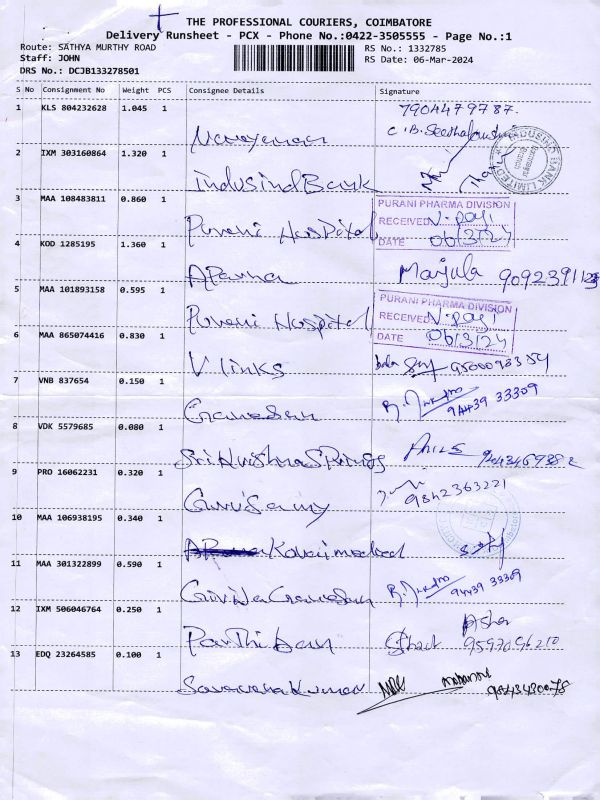 THE PROFESSIONAL COURIERS, COIMBATORE
Delivery Runsheet - PCX - Phone No.:0422-3505555 - Page No.:1
Route: SATHYA MURTHY ROAD RS No.: 1332785
Staff: JOHN RS Date: 06-Mar-2024
DRS No.: DCJB133278501
S No Consignment No Weight PCS Consignee Details Signature
1 KLS 804232628 1.045 1
7904479787
Narayanan
2 IXM 303160864 1.320 1
IndusInd Bank
INDUSIND BANK LIMITED
3 MAA 108483811 0.860 1
PURANI PHARMA DIVISION
RECEIVED
DATE 06/3/24
Purani Hospital
4 KOD 1285195 1.360 1
Aparna Manjula
5 MAA 101893158 0.595 1
PURANI PHARMA DIVISION
RECEIVED
DATE 06/3/24
Purani Hospital
6 MAA 865074416 0.830 1
V links
7 VNB 837654 0.150 1
94439 33309
Ganesan
8 VDK 5579685 0.080 1
Sri Krishna Springs
9 PRO 16062231 0.320 1
9842363221
Gurusamy
10 MAA 106938195 0.340 1
Kovai medical
11 MAA 301322899 0.590 1
94439 33309
12 IXM 506046764 0.250 1
Asha
Parthiban 9597096210
13 EDQ 23264585 0.100 1
Saravana Kumar